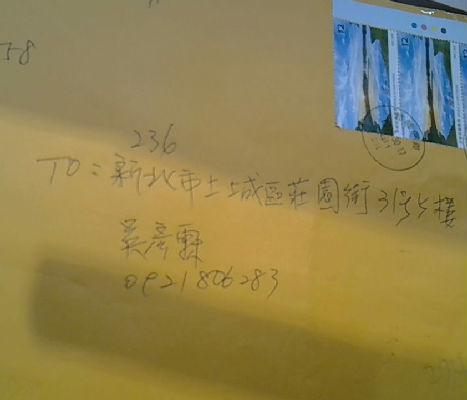 58
236
TO: 新北市土城區莊園街31號5樓
吳彥霖
0921806283
12
12